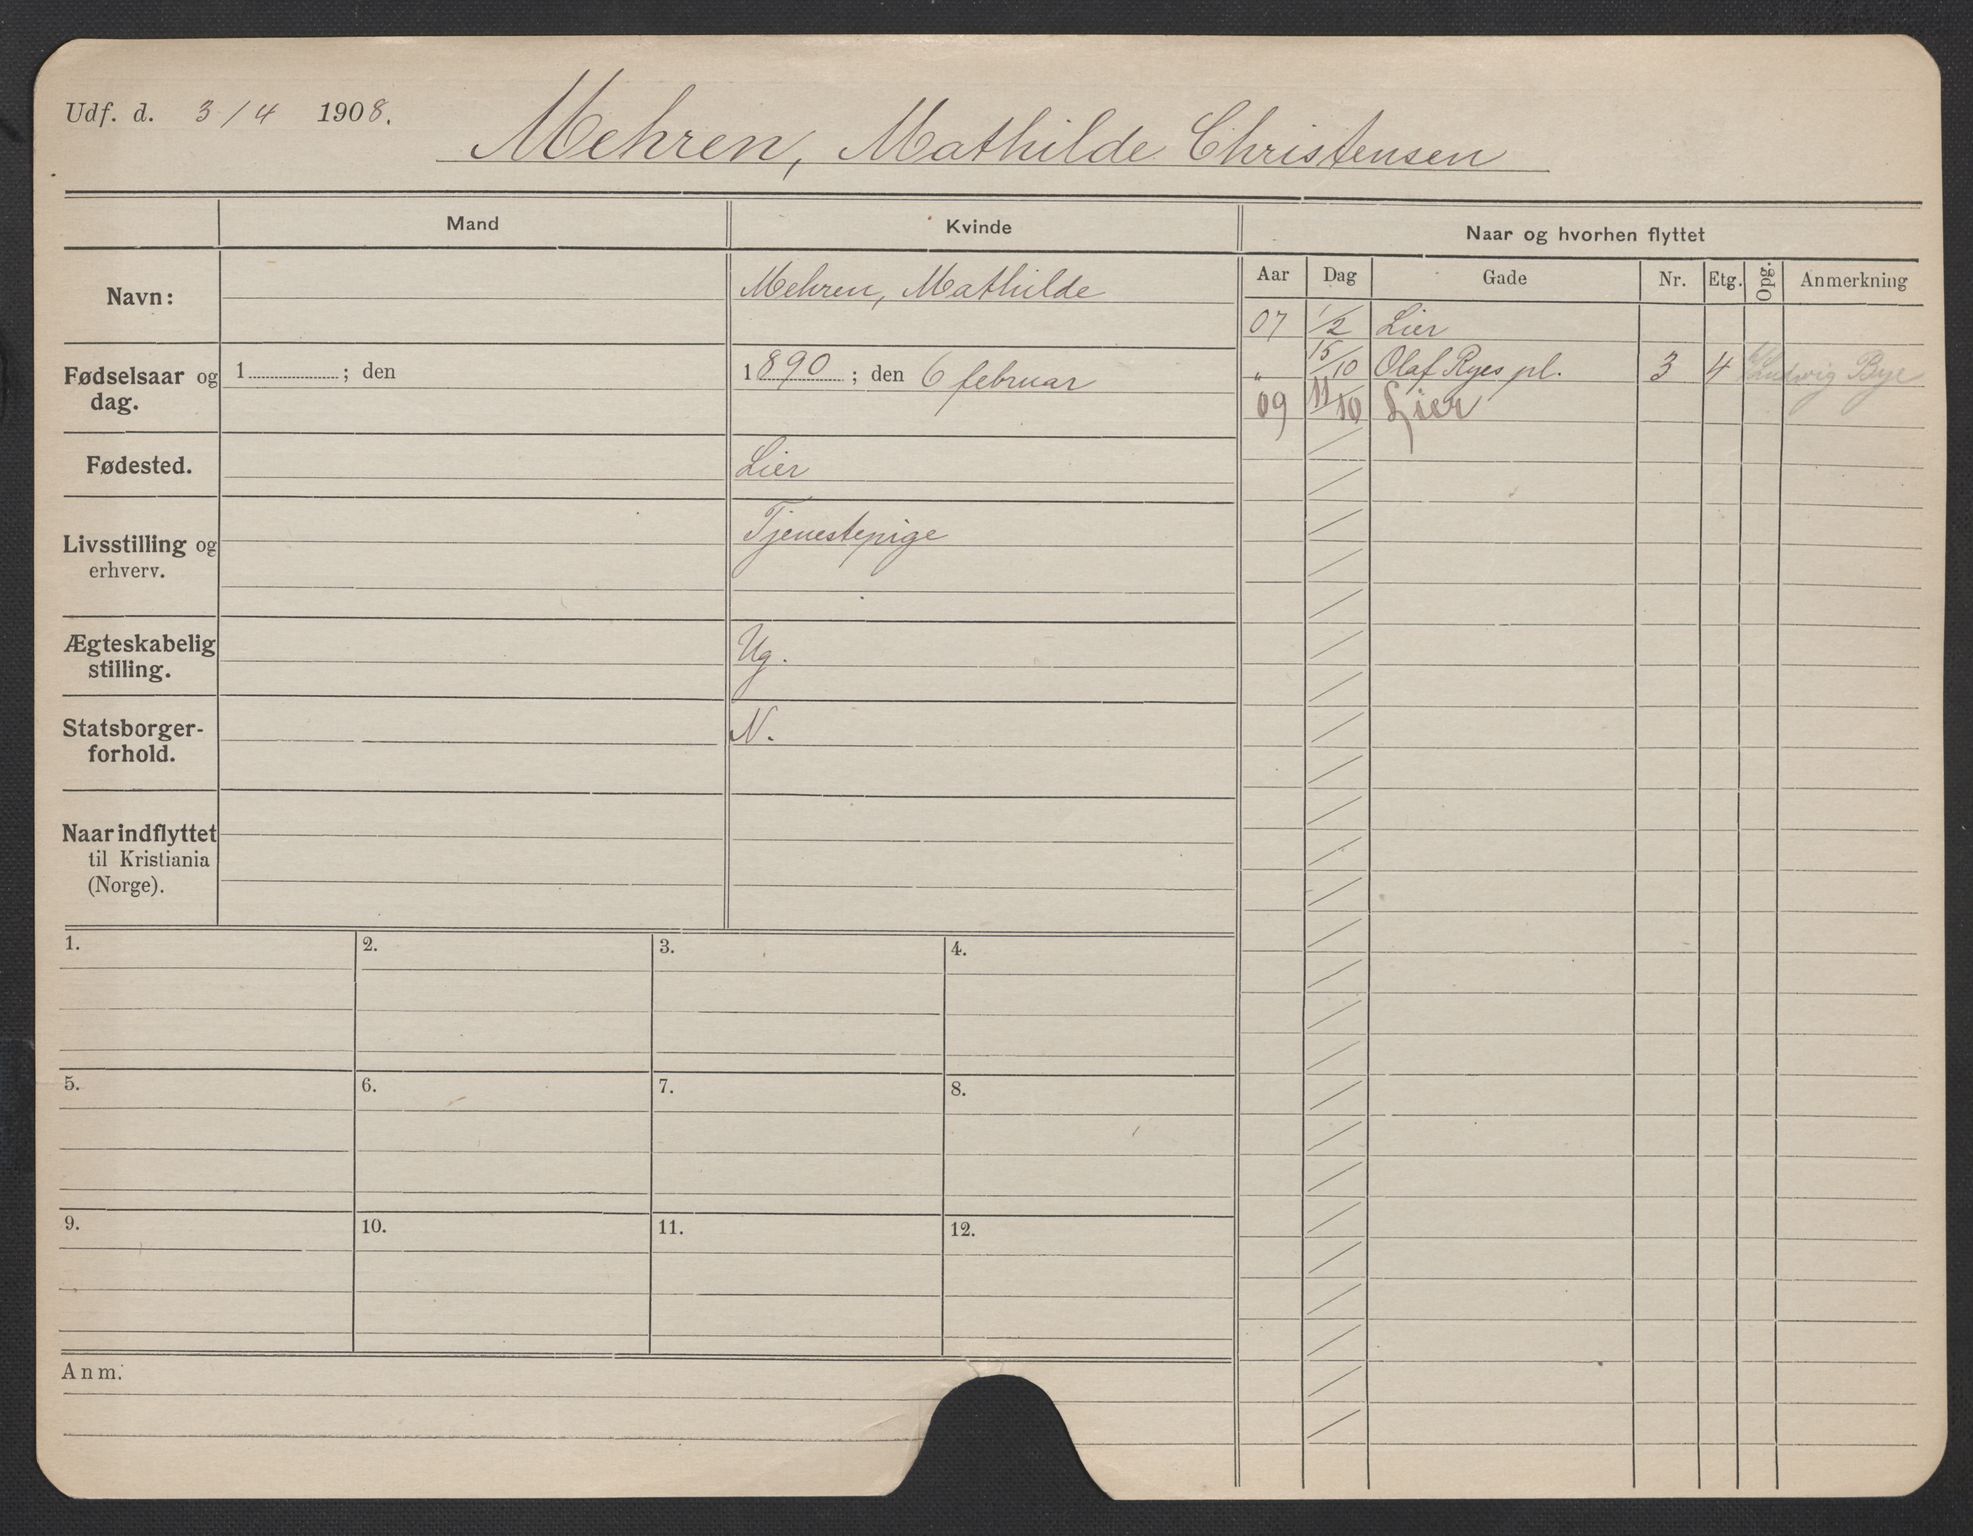 Udf. d. 3/4 1908.
Mehren, Mathilde Christensen
Mand
Kvinde
Naar og hvorhen flyttet
Navn:
Mehren, Mathilde
Fødselsaar og dag.
1 ; den
1890 ; den 6 februar
Fødested.
Lier
Livsstilling og
erhverv.
Tjenestepige
Ægteskabelig
stilling.
Ug.
Statsborger-
forhold.
N.
Naar indflyttet
til Kristiania
(Norge).
Aar Dag Gade Nr. Etg. Opg. Anmerkning
07 1/2 Lier
" 15/10 Olaf Ryes pl. 3 4 Bye
09 11/10 Lier
1. 2. 3. 4.
5. 6. 7. 8.
9. 10. 11. 12.
Anm: